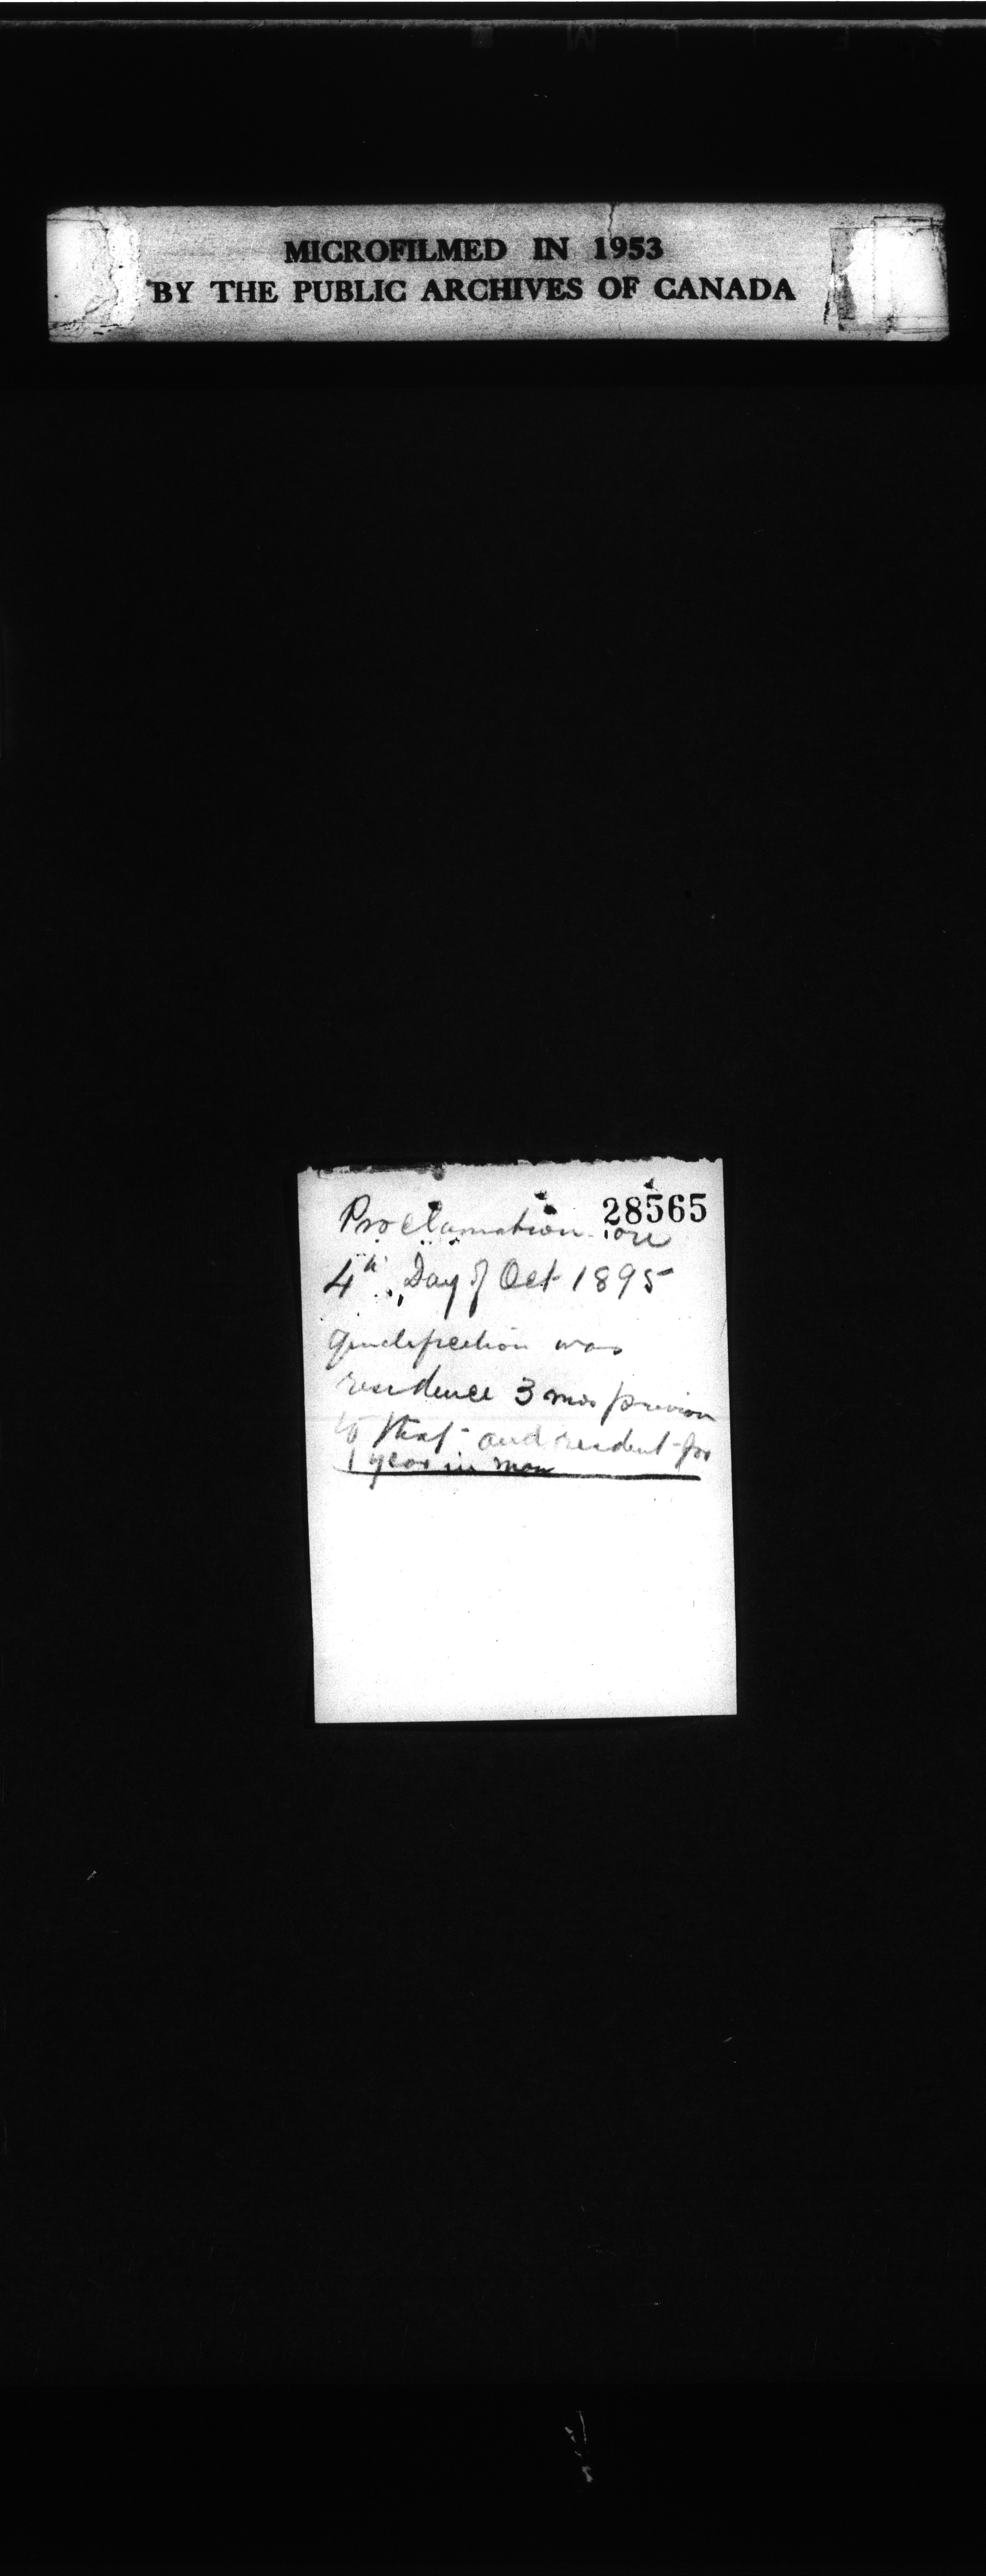 MICROFILMED IN 1953
BY THE PUBLIC ARCHIVES OF CANADA
28565
Proclamation on
4th Day of Oct 1895
qualification was
residence 3 mos previous
to that - and resident for
1 year in Man